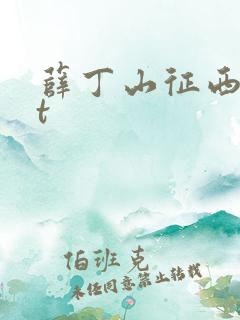 薛丁山征西
t
伯班克
未经同意禁止转载